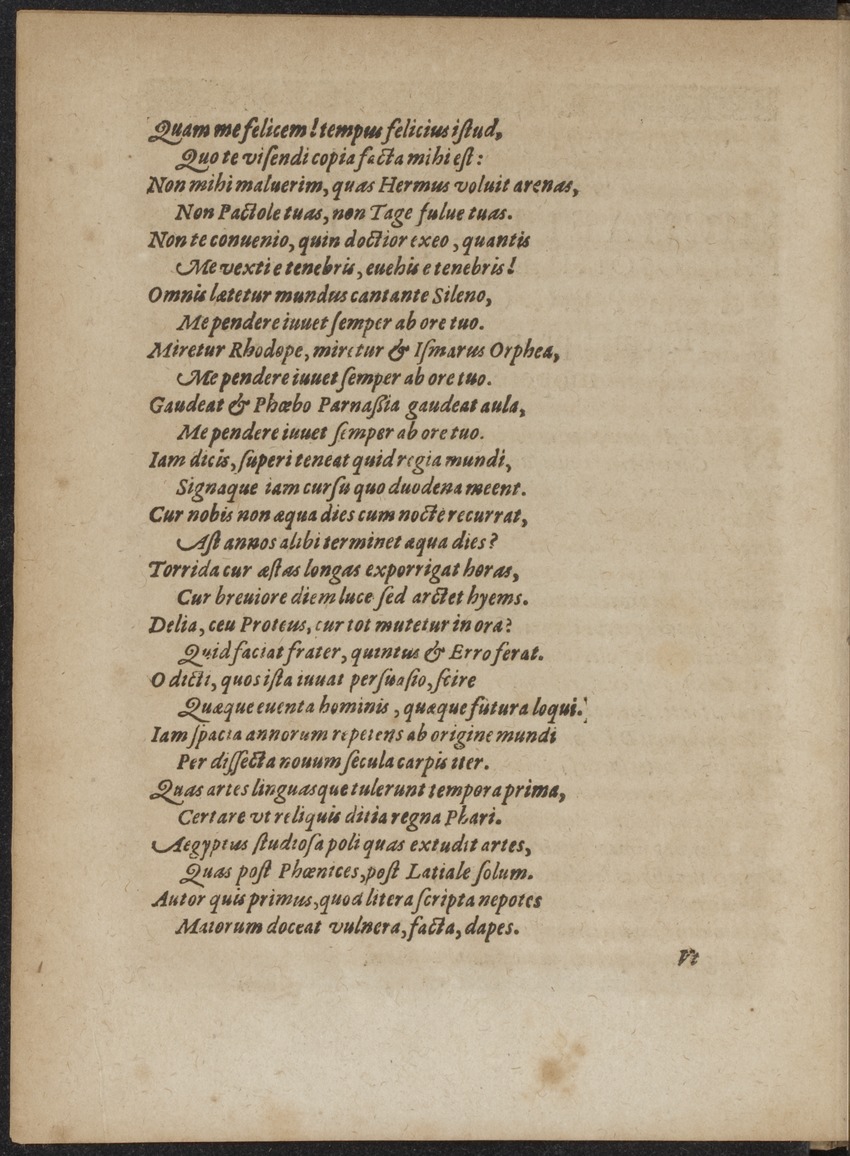 Quam me felicem! tempus felicius iſtud,
Quo te viſendi copia facta mihi eſt:
Non mihi maluerim, quas Hermus voluit arenas,
Non Pactole tuas, non Tage fulue tuas.
Non te conuenio, quin doctior exeo, quantis
Me vexti e tenebris, euehis e tenebris!
Omnis lætetur mundus cantante Sileno,
Me pendere iuuet ſemper ab ore tuo.
Miretur Rhodope, miretur & Iſmarus Orphea,
Me pendere iuuet ſemper ab ore tuo.
Gaudeat & Phœbo Parnaßia gaudeat aula,
Me pendere iuuet ſemper ab ore tuo.
Iam dicis, ſuperi teneat quid regia mundi,
Signaque iam curſu quo duodena meent.
Cur nobis non æqua dies cum nocte recurrat,
Aſt annos alibi terminet æqua dies?
Torrida cur æſtas longas exporrigat horas,
Cur breuiore diem luce ſed arctet hyems.
Delia, ceu Proteus, cur tot mutetur in ora?
Quid faciat frater, quintus & Erro ferat.
O dicti, quos iſta iuuat perſuaſio, ſcire
Quæque euenta hominis, quæque futura loqui.
Iam ſpacia annorum repetens ab origine mundi
Per diſſecta nouum ſecula carpis iter.
Quas artes linguasque tulerunt tempora prima,
Certare vt reliquis ditia regna Phari.
Aegyptus ſtudioſa poli quas extudit artes,
Quas poſt Phœnices, poſt Latiale ſolum.
Autor quis primus, quod litera ſcripta nepotes
Maiorum doceat vulnera, facta, dapes.
Vt